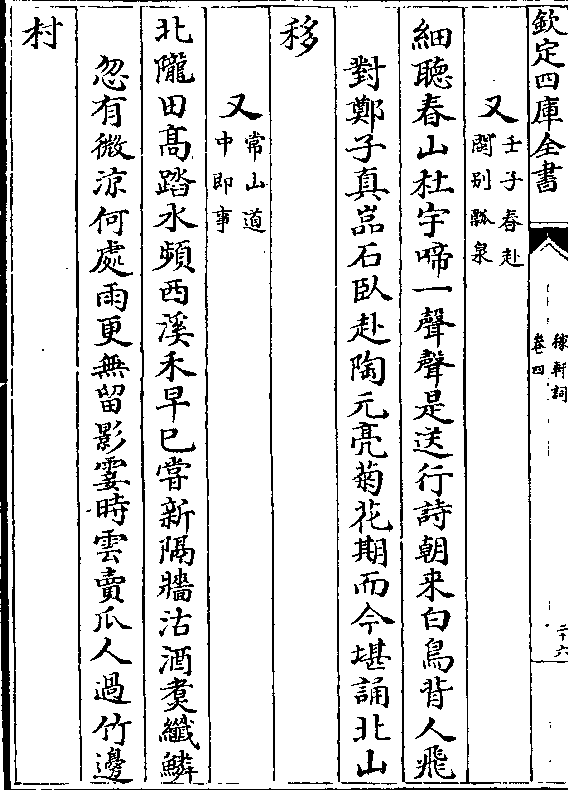 欽定四庫全書
稼軒詞
卷四
二十六
又壬子春赴
閩别瓢泉
細聽春山杜宇啼一聲聲是送行詩朝来白鳥背人飛
對鄭子真嵓石臥赴陶元亮菊花期而今堪誦北山
移
又常山道
中即事
北隴田髙踏水頻西溪禾早已嘗新隔牆沽酒煑纎鱗
忽有微涼何處雨更無留影霎時雲賣瓜人過竹邊
村